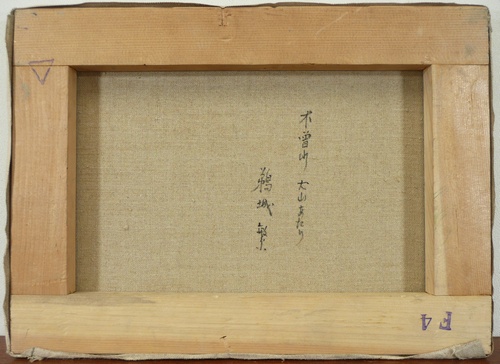 木曽川 犬山あたり
鵜城 繁
F4